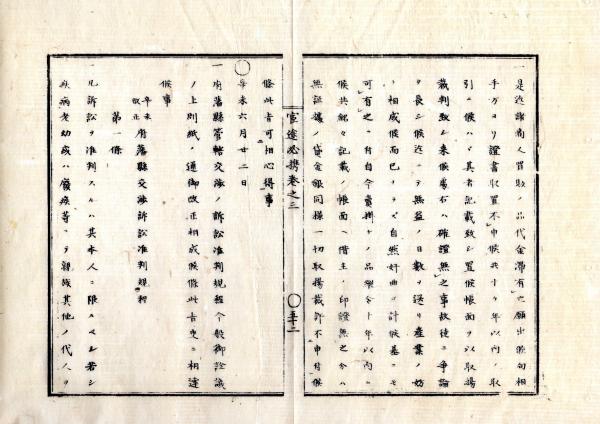 一是迄諸商人買取ノ品代金滞有之願出候節相
手方ヨリ證書取置不申候共十ケ年以内ノ取
引ニ候ハヽ其者記載致シ置候帳面ヲ以取揚
裁判致シ来候處右ハ確證無之事故徒ニ争論
ヲ長シ候迄ニテ無益ノ日数ヲ送リ産業ノ妨
ト相成候而已ナラズ自然奸曲ノ計候基ニモ
可有之ニ付自今賣掛ケノ品ハ
候共銘々記載ノ帳面ヘ借主ノ印證無之分ハ
無証據ノ貸金銀同様一切取揚裁許不申付候
官途必携巻之三
五十二
條此旨可相心得事
辛未六月廿二日
一府藩縣管轄交渉ノ訴訟准判規程今般御詮議
ノ上別紙ノ通御改正相成候條此旨更ニ相達
候事
辛未改正府藩縣交渉訴訟准判規程
第一條
一凡訴訟ヲ准判スルハ其本人ニ限ルベシ若シ
疾病老幼或ハ癈疾等ニテ親戚其他ノ代人ヲ